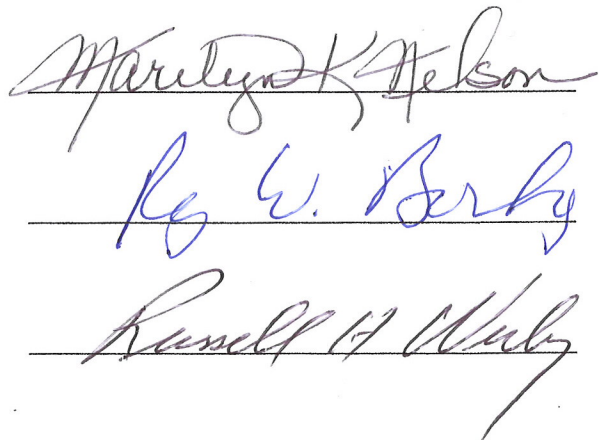 Marilyn K Nelson
Roy W. Berky
Russell H Weeby